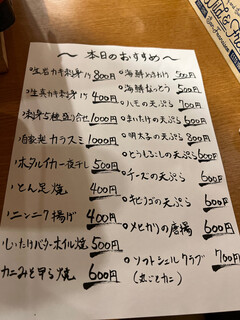 〜本日のおすすめ〜
・生岩カキ刺身 1ケ 800円
・生真カキ刺身 1ケ 400円
・刺身5種盛合せ 1000円
・自家製カラスミ 1000円
・ホタルイカ一夜干し 500円
・とん足焼 400円
・ニンニク揚げ 400円
・しいたけバターホイル焼 500円
カニみそ甲ら焼 600円
・海鮮 500円
・海鮮なっとう 500円
・ハモの天ぷら 700円
・まいたけの天ぷら 600円
・明太子の天ぷら 800円
・とうもろこしの天ぷら 600円
・チーズの天ぷら 600円
・キビナゴの天ぷら 600円
・メヒカリの唐揚 600円
・ソフトシェルクラブ 760円
(丸ごとカニ)